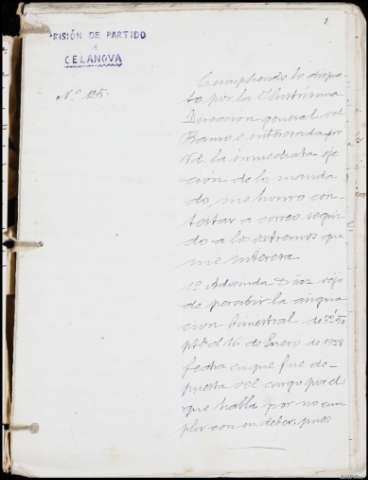 1
PRISIÓN DE PARTIDO
CELANOVA
Nº 125
Cumpliendo lo dispues
to por la Ilustrísima
Direccion general del
Ramo e interesada por
Vd. la inmediata eje
cución de lo manda
do, me honro con
testar a correo segui
do a los extremos que
me interesa.
1º Adosinda Díaz
de percibir la asigna
cion trimestral de
16 de Enero de
fecha en que fue de
puesta del cargo
que habla por no cum
plir con su deber, pues